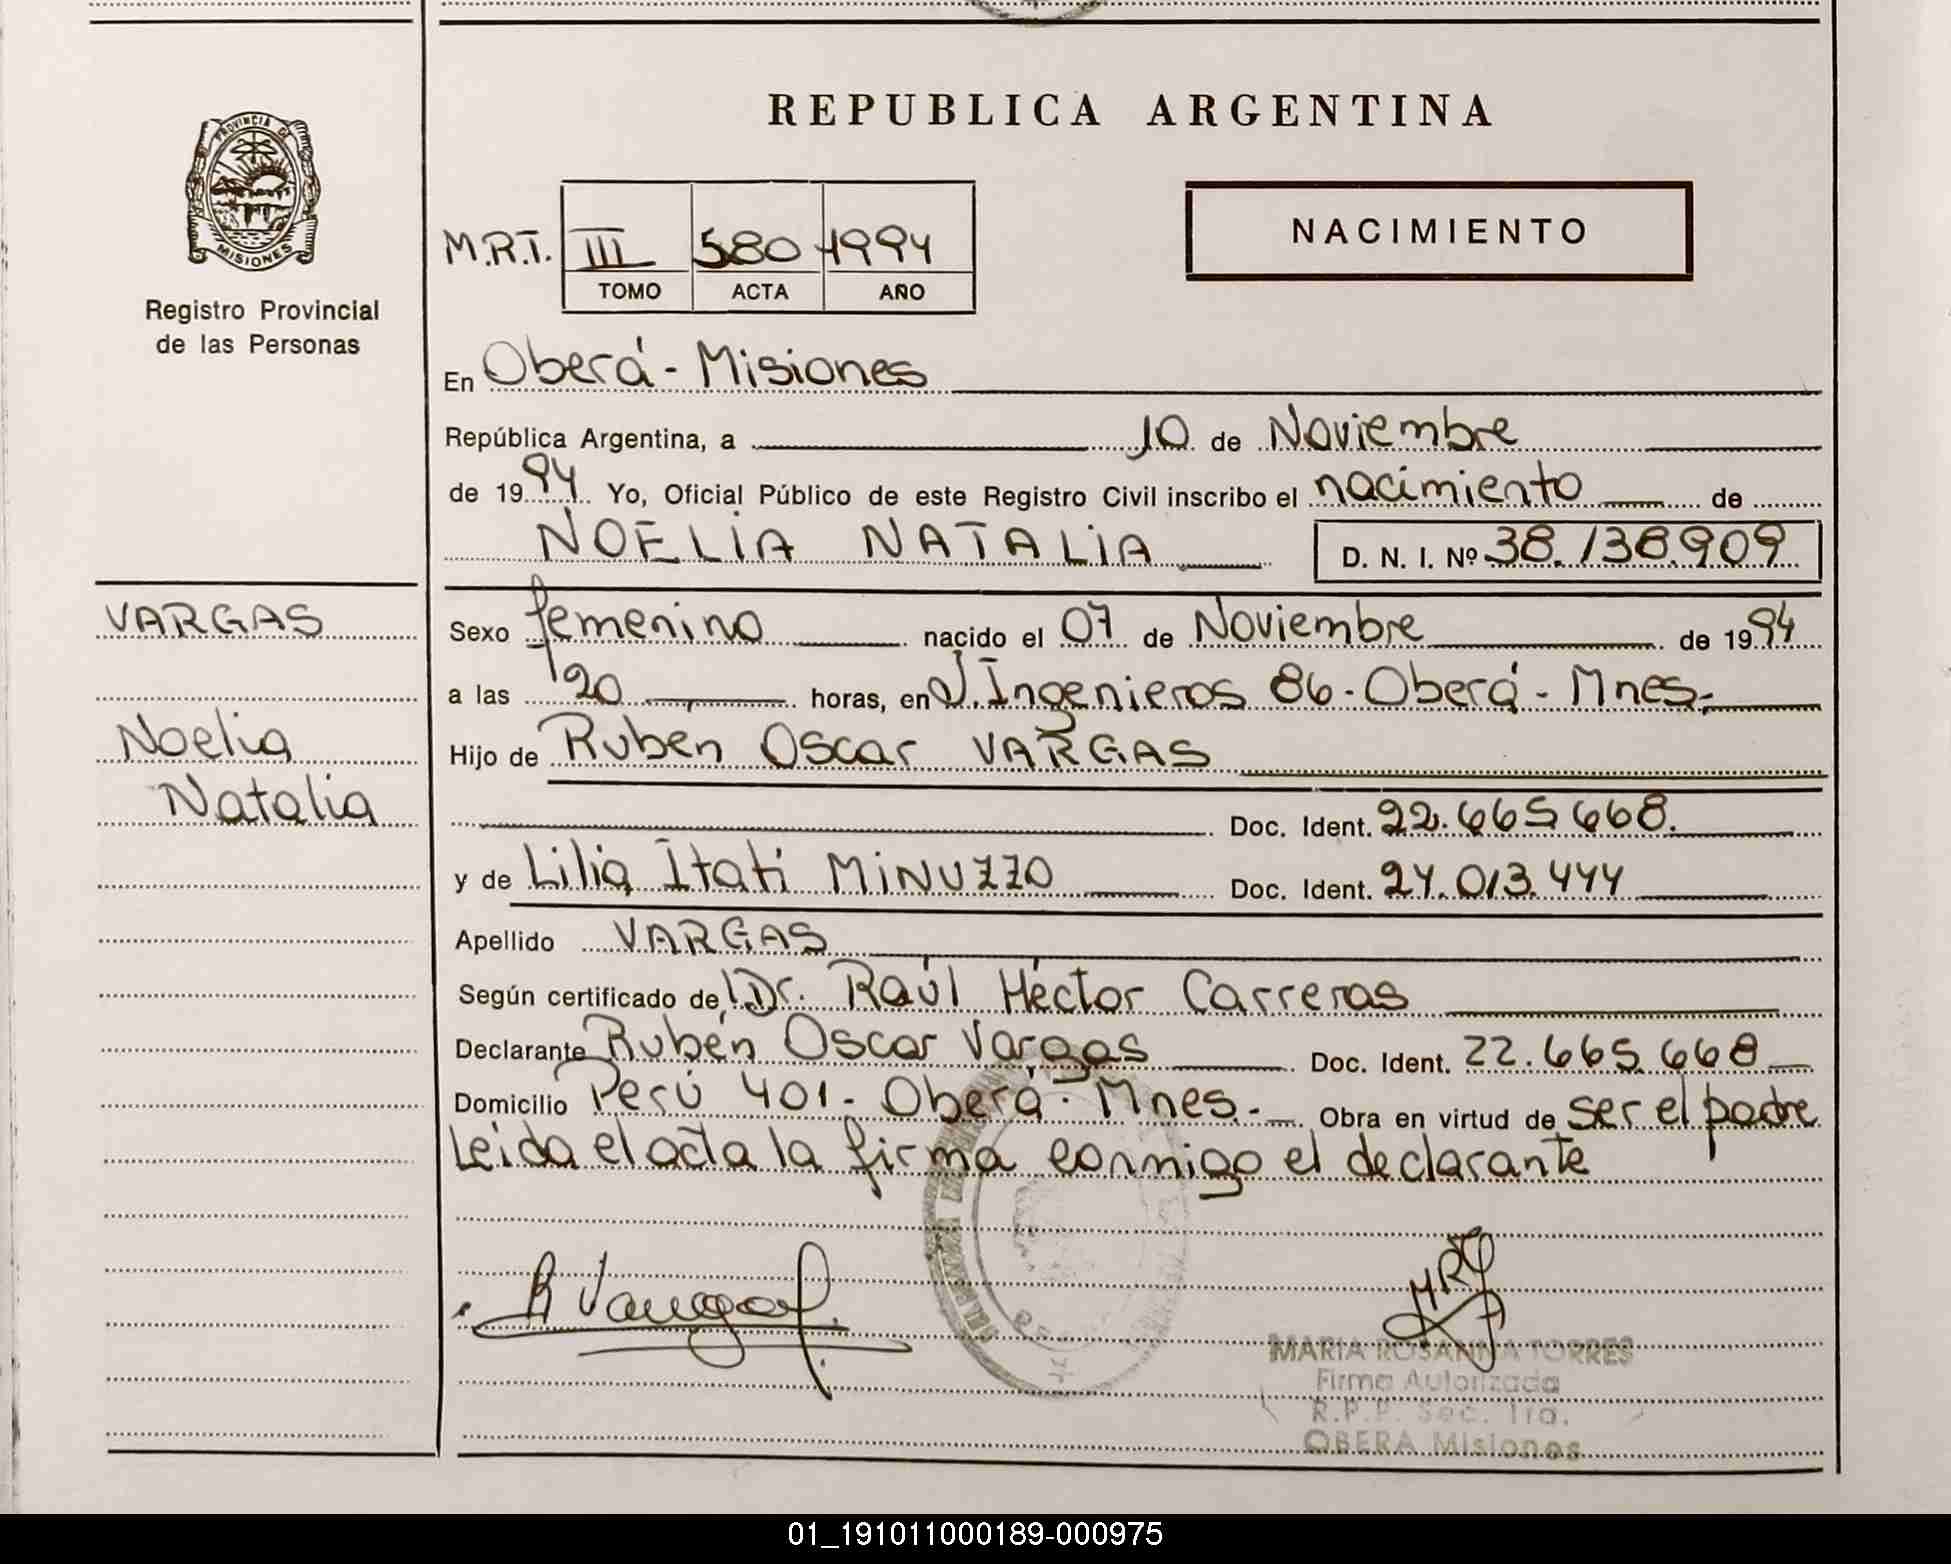 REPUBLICA ARGENTINA
PROVINCIA DE
MISIONES
Registro Provincial
de las Personas
NACIMIENTO
M.R.T. III 580 1994
TOMO ACTA AÑO
En Oberá - Misiones
República Argentina, a 10 de Noviembre
de 1994 Yo, Oficial Público de este Registro Civil inscribo el nacimiento de
NOELIA NATALIA D. N. I. Nº 38.138.909
VARGAS
Noelia
Natalia
Sexo femenino nacido el 07 de Noviembre de 1994
a las 20 horas, en J. Ingenieros 86 - Oberá - Mnes.-
Hijo de Ruben Oscar VARGAS
Doc. Ident. 22.665 668.
y de Lilia Itati MINUZZO Doc. Ident. 24.013.444
Apellido VARGAS
Según certificado de Dr. Raúl Héctor Carreras
Declarante Rubén Oscar Vargas Doc. Ident. 22.665.668
Domicilio Perú 401 - Oberá - Mnes.- Obra en virtud de ser el padre
Leida el acta la firma conmigo el declarante
R Vargas
MRT
MARIA ROSANNA TORRES
Firma Autorizada
R.P.P. Sec. 1ra.
OBERA Misiones
01_191011000189-000975